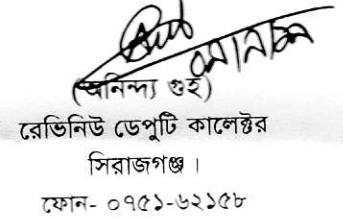 (অনিন্দ্য গুহ)
রেভিনিউ ডেপুটি কালেক্টর
সিরাজগঞ্জ ।
ফোন- ০৭৫১-৬২১৫৮